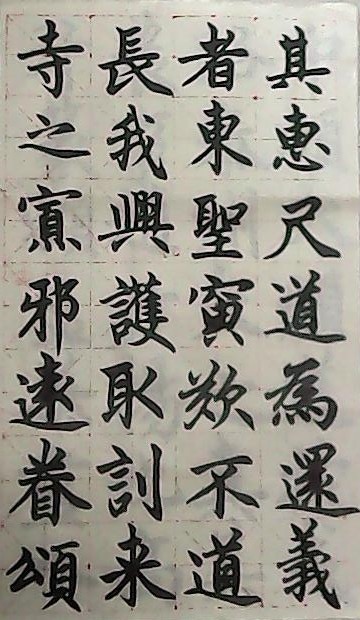 其惠尺道為還義
者東聖寅欻不道
長我興護取訓来
寺之寘邪遠眷頌